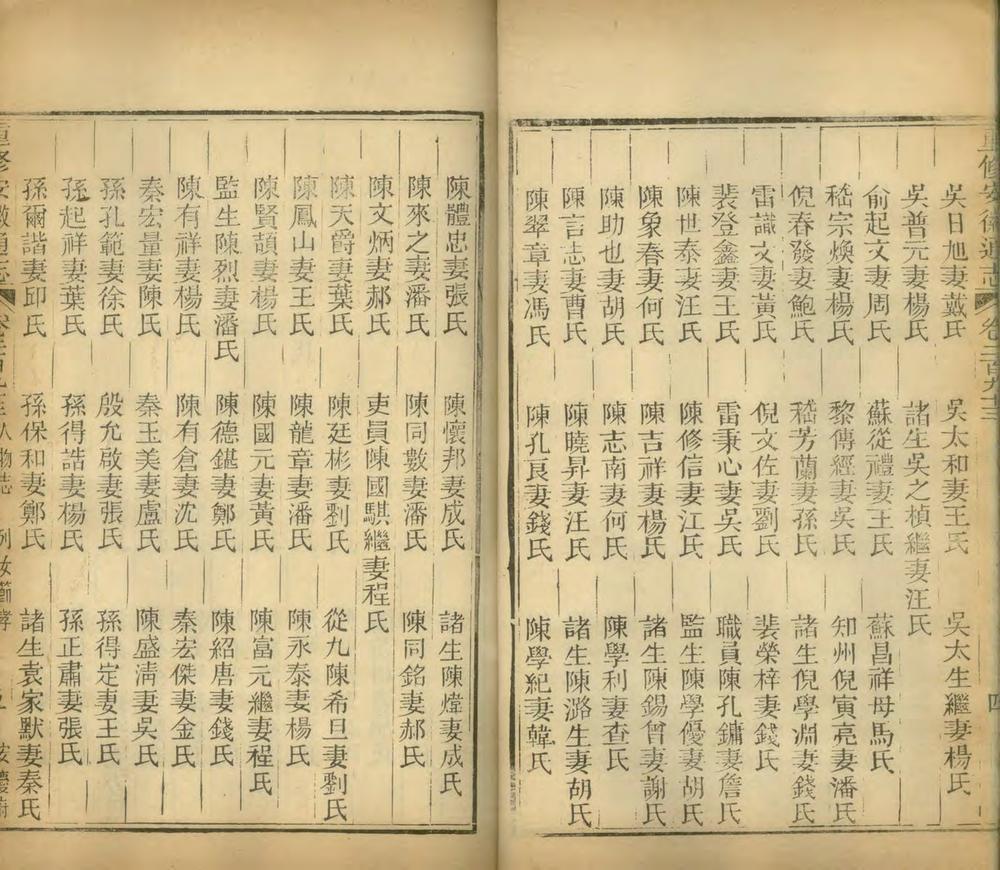 重修安徽通志 卷二百九十三 四
吳日旭妻戴氏 吳太和妻王氏 吳太生繼妻楊氏
吳普元妻楊氏 諸生吳之楨繼妻汪氏
俞起文妻周氏 蘇從禮妻王氏 蘇昌祥母馬氏
嵇宗煥妻楊氏 黎傳經妻吳氏 知州倪寅亮妻潘氏
倪春發妻鮑氏 嵇芳蘭妻孫氏 諸生倪學淵妻錢氏
雷識文妻黃氏 倪文佐妻劉氏 裴榮梓妻錢氏
裴登鑫妻王氏 雷秉心妻吳氏 職員陳孔鏞妻詹氏
陳世泰妻汪氏 陳修信妻江氏 監生陳學優妻胡氏
陳象春妻何氏 陳吉祥妻楊氏 諸生陳錫曾妻謝氏
陳助也妻胡氏 陳志南妻何氏 陳學利妻查氏
陳言志妻曹氏 陳曉昇妻汪氏 諸生陳潞生妻胡氏
陳翠章妻馮氏 陳孔良妻錢氏 陳學紀妻韓氏
陳體忠妻張氏 陳懷邦妻成氏 諸生陳煒妻成氏
陳來之妻潘氏 陳同數妻潘氏 陳同銘妻郝氏
陳文炳妻郝氏 吏員陳國騏繼妻程氏
陳天爵妻葉氏 陳廷彬妻劉氏 從九陳希旦妻劉氏
陳鳳山妻王氏 陳龍章妻潘氏 陳永泰妻楊氏
陳賢頡妻楊氏 陳國元妻黃氏 陳富元繼妻程氏
監生陳烈妻潘氏 陳德鍖妻鄭氏 陳紹唐妻錢氏
陳有祥妻楊氏 陳有倉妻沈氏 秦宏傑妻金氏
秦宏量妻陳氏 秦玉美妻盧氏 陳盛淸妻吳氏
孫孔範妻徐氏 殷允啟妻張氏 孫得定妻王氏
孫起祥妻葉氏 孫得誥妻楊氏 孫正肅妻張氏
孫爾諧妻印氏 孫保和妻鄭氏 諸生袁家默妻秦氏
重修安徽通志 人物志 列女 節孝